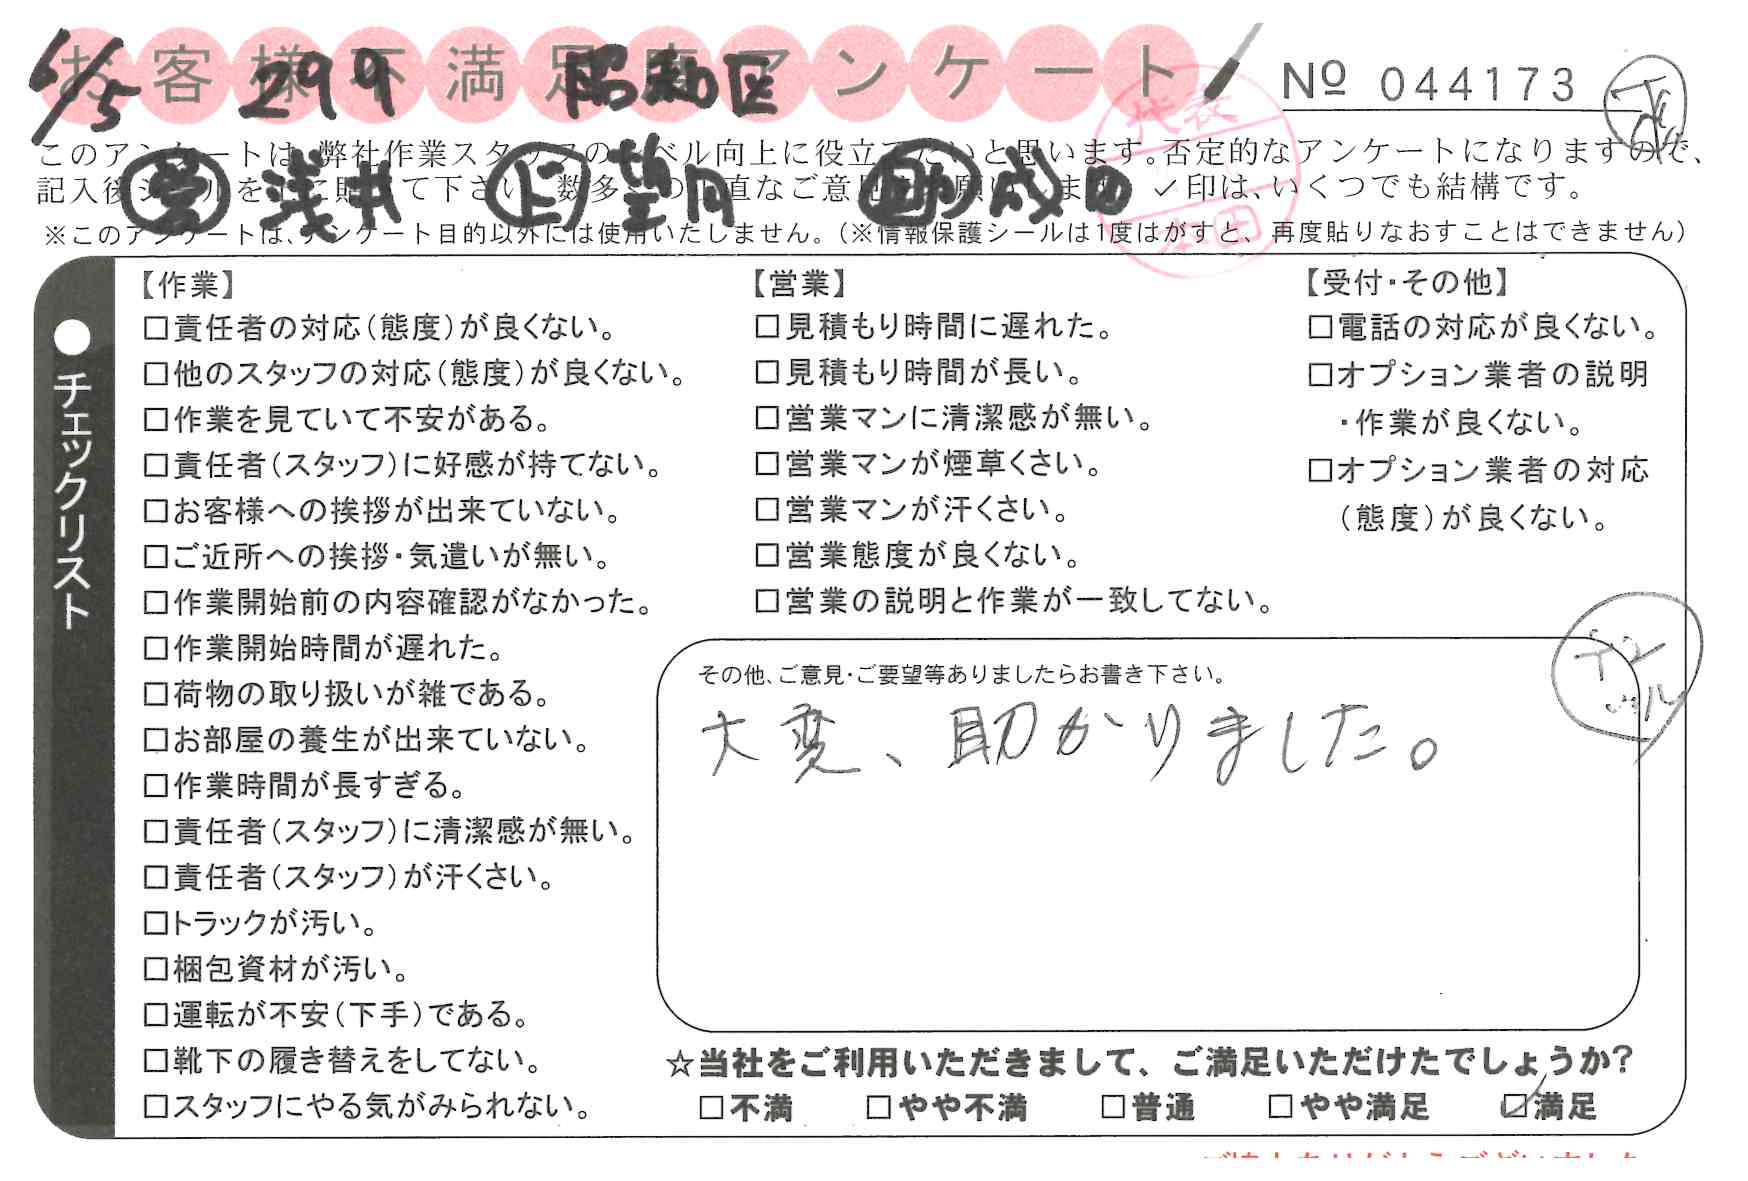 お客様不満足度アンケート
6/5 299 昭和区
№ 044173
このアンケートは、弊社作業スタッフのレベル向上に役立てたいと思います。否定的なアンケートになりますので、
記入後シールを上に貼って下さい。数多くの正直なご意見をお願いします。✓印は、いくつでも結構です。
営 浅井 上 望月 助 成田
代表 本田
※このアンケートは、アンケート目的以外には使用いたしません。(※情報保護シールは1度はがすと、再度貼りなおすことはできません)
●チェックリスト
【作業】
□責任者の対応(態度)が良くない。
□他のスタッフの対応(態度)が良くない。
□作業を見ていて不安がある。
□責任者(スタッフ)に好感が持てない。
□お客様への挨拶が出来ていない。
□ご近所への挨拶・気遣いが無い。
□作業開始前の内容確認がなかった。
□作業開始時間が遅れた。
□荷物の取り扱いが雑である。
□お部屋の養生が出来ていない。
□作業時間が長すぎる。
□責任者(スタッフ)に清潔感が無い。
□責任者(スタッフ)が汗くさい。
□トラックが汚い。
□梱包資材が汚い。
□運転が不安(下手)である。
□靴下の履き替えをしてない。
□スタッフにやる気がみられない。
【営業】
□見積もり時間に遅れた。
□見積もり時間が長い。
□営業マンに清潔感が無い。
□営業マンが煙草くさい。
□営業マンが汗くさい。
□営業態度が良くない。
□営業の説明と作業が一致してない。
【受付・その他】
□電話の対応が良くない。
□オプション業者の説明
・作業が良くない。
□オプション業者の対応
(態度)が良くない。
その他、ご意見・ご要望等ありましたらお書き下さい。
大変、助かりました。
☆当社をご利用いただきまして、ご満足いただけたでしょうか?
□不満 □やや不満 □普通 □やや満足 ☑満足
ご協力ありがとうございました